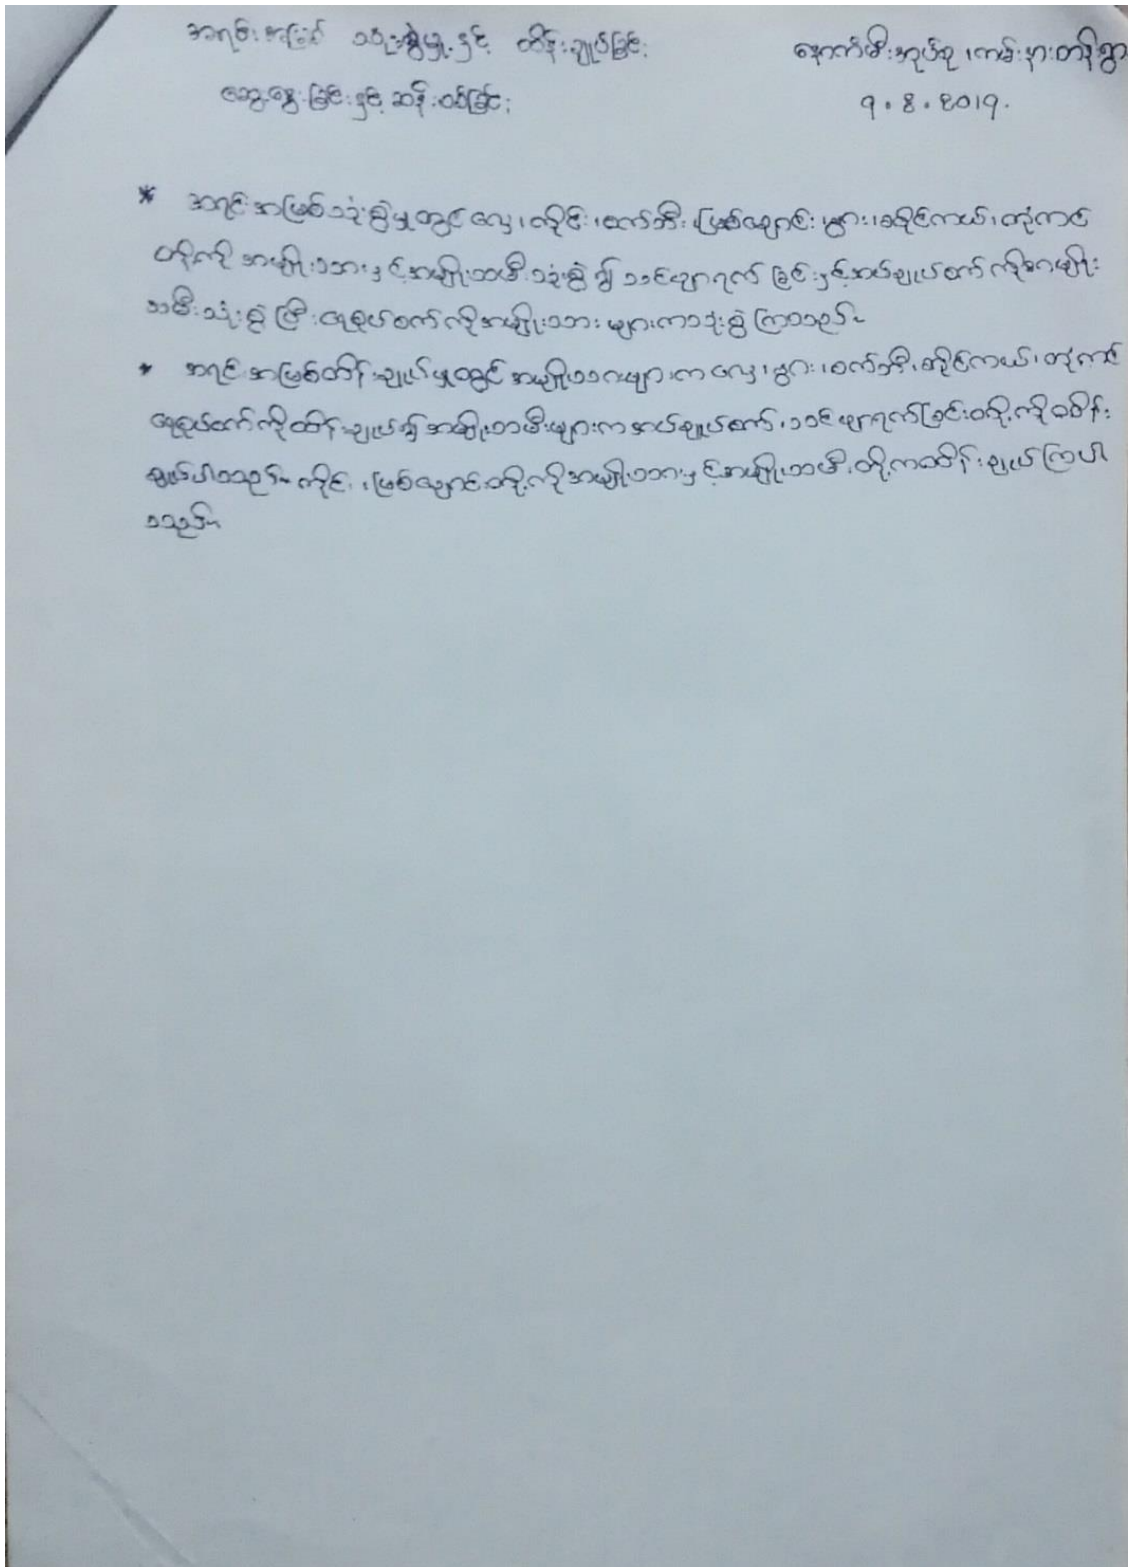 အရင်းအမြစ် သုံးစွဲမှုနှင့် ထိန်းချုပ်ခြင်း
နောက်မီးအုပ်စု၊ ကမ်းနားတန်ရွာ
ဆွေးနွေးခြင်းနှင့် ဆန်းစစ်ခြင်း
၅.၄.၂၀၁၇.
* အရင်းအမြစ်သုံးစွဲမှုတွင် လှေ၊ လှိုင်း၊ စက်ဘီး၊ မြစ်ချောင်း၊ ကျွဲ၊ ဆိုင်ကယ်၊
တို့ကို အမျိုးသားနှင့်အမျိုးသမီး သုံးစွဲ၍ သင်ဖျာရက်ခြင်းနှင့်အပ်ချုပ်စက်ကိုအမျိုး
သမီးသုံးစွဲပြီး ရေစုပ်စက်ကိုအမျိုးသားများကသုံးစွဲကြသည်။
* အရင်းအမြစ်ထိန်းချုပ်မှုတွင် အမျိုးသားများက လှေ၊ စက်ဘီး၊ ဆိုင်ကယ်၊
ရေစုပ်စက်ကိုထိန်းချုပ်၍ အမျိုးသမီးများကအပ်ချုပ်စက်၊ သင်ဖျာရက်ခြင်းတို့ကိုထိန်း
ချုပ်ပါသည်။ မြစ်ချောင်းတို့ကိုအမျိုးသားနှင့်အမျိုးသမီးတို့ကထိန်းချုပ်ကြပါ
သည်။